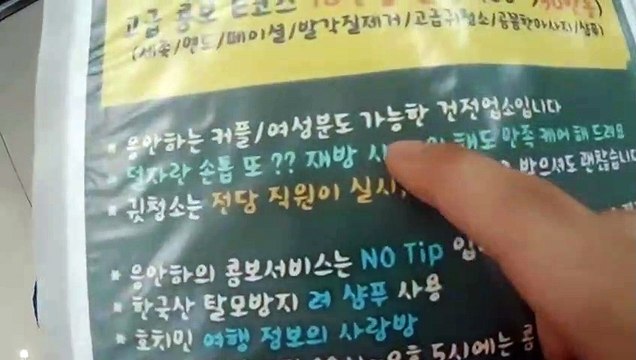 고급 콤보 E코스
(세족/핸드/페이셜/발각질제거/고급귀청소/곰돌핫마사지/샴푸)
• 응안하는 커플/여성분도 가능한 건전업소입니다
• 덜자란 손톱 또?? 재방 해도 만족 케어 해 드려요
• 귓청소는 전담 직원이 실시, 받으셔도 괜찮습니다
• 응안하의 콤보서비스는 NO Tip
• 한국산 탈모방지 려 샴푸 사용
• 호치민 여행 정보의 사랑방
5시에는 콤